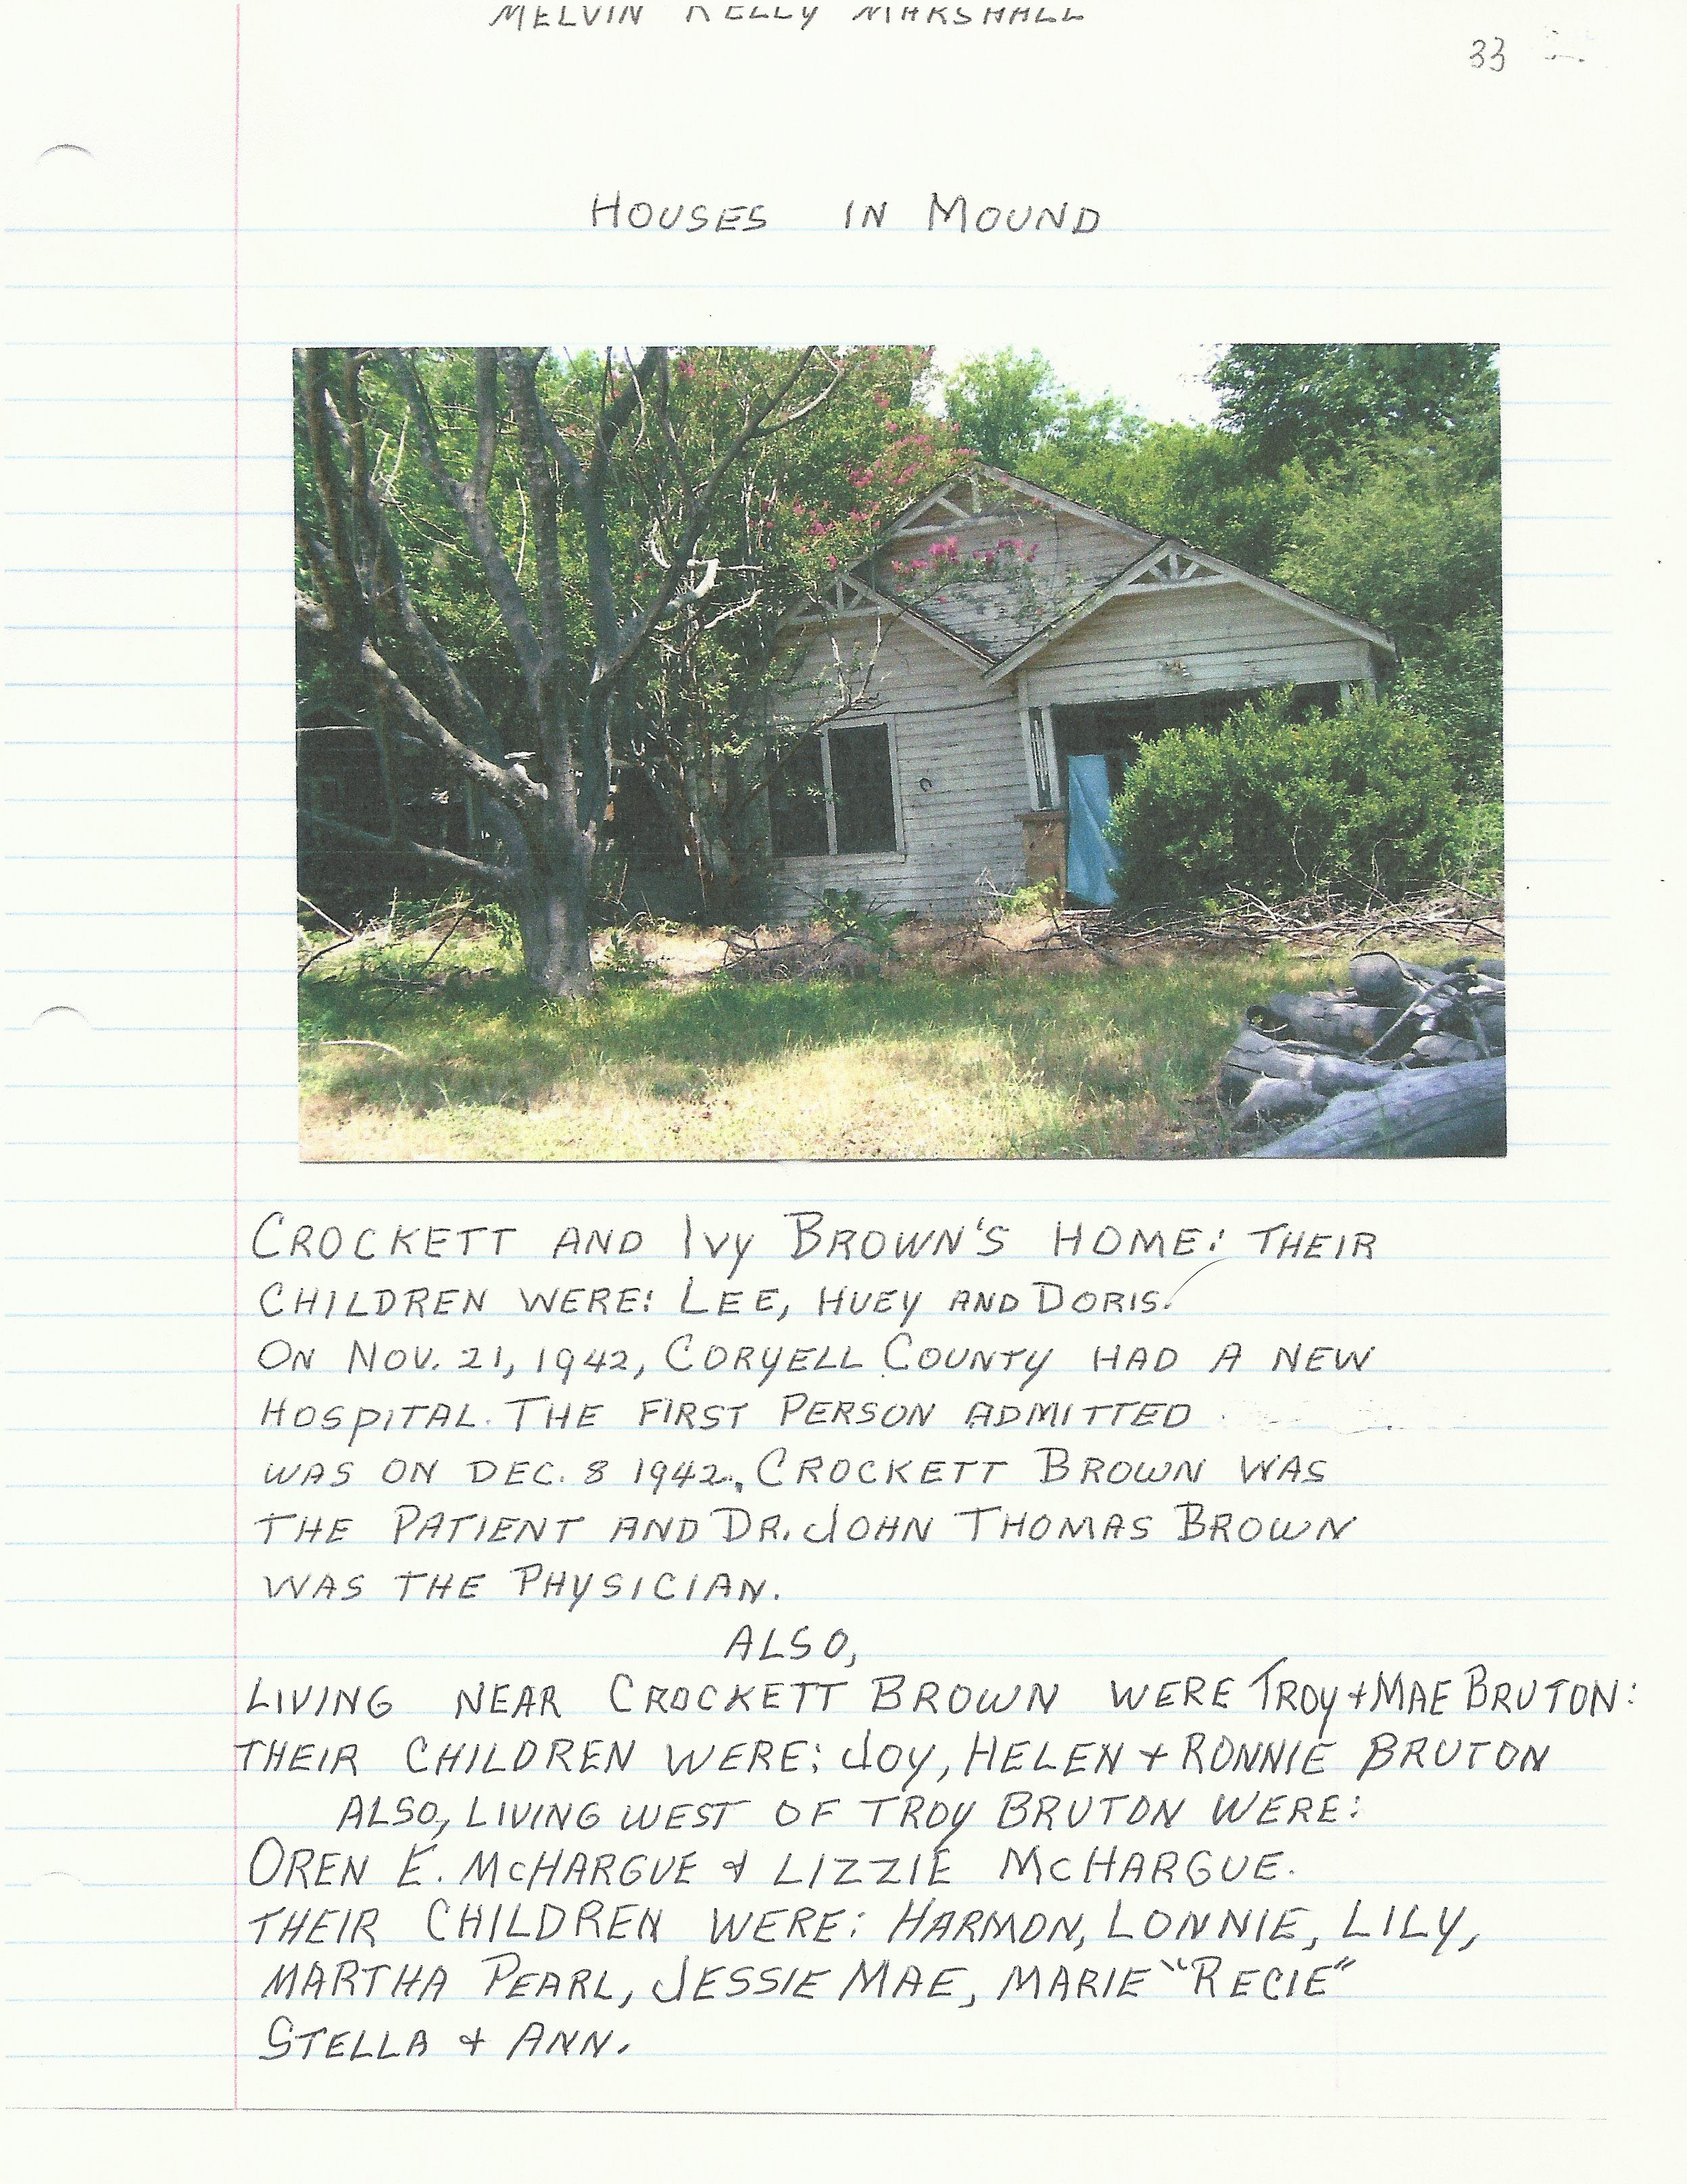 MELVIN KELLY MARSHALL
33
HOUSES IN MOUND
CROCKETT AND IVY BROWN'S HOME: THEIR
CHILDREN WERE: LEE, HUEY AND DORIS.
ON NOV. 21, 1942, CORYELL COUNTY HAD A NEW
HOSPITAL. THE FIRST PERSON ADMITTED
WAS ON DEC. 8 1942, CROCKETT BROWN WAS
THE PATIENT AND DR. JOHN THOMAS BROWN
WAS THE PHYSICIAN.
ALSO,
LIVING NEAR CROCKETT BROWN WERE TROY + MAE BRUTON:
THEIR CHILDREN WERE: JOY, HELEN + RONNIE BRUTON
ALSO, LIVING WEST OF TROY BRUTON WERE:
OREN E. MCHARGUE & LIZZIE MCHARGUE.
THEIR CHILDREN WERE: HARMON, LONNIE, LILY,
MARTHA PEARL, JESSIE MAE, MARIE "RECIE"
STELLA & ANN.